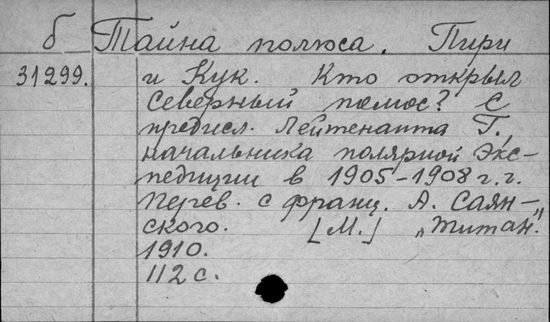 б Тайна полюса. Пири
31299. и Кук. Кто открыл
северный полюс? С
предисл. Лейтенанта Г.,
начальника полярной экс-
педиции в 1905-1908 г.г.
Перев. с франц. А. Саян-
ского. [М.] „Титан".
1910.
112 с.